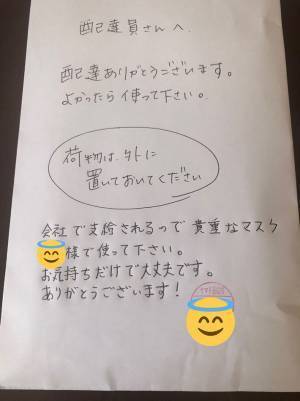 配達員さんへ.
配達ありがとうございます。
よかったら使って下さい。
荷物は、外に
置いておいてください
会社で支給されるので 貴重なマスク
様で使って下さい。
お気持ちだけで大丈夫です。
ありがとうございます！